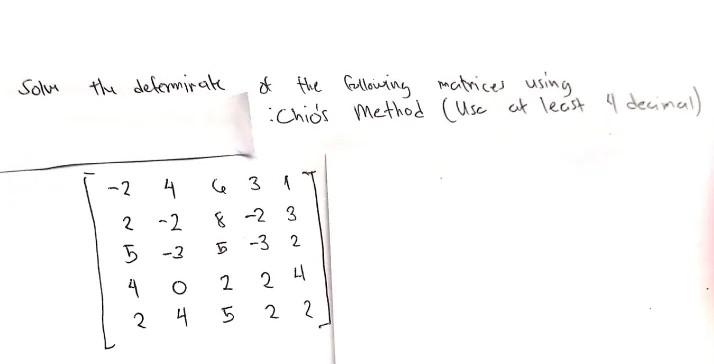 Solve the determinate of the following matrices using
:Chio's Method (Use at least 4 decimal)
-2 4 6 3 1
2 -2 8 -2 3
5 -3 5 -3 2
4 0 2 2 4
2 4 5 2 2